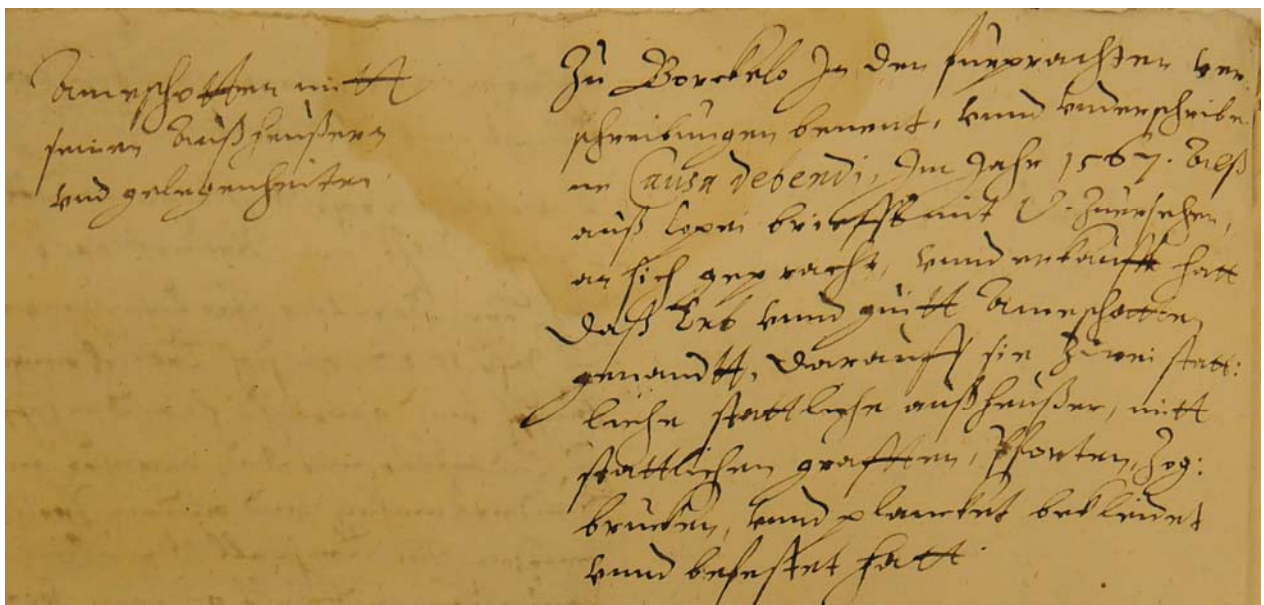 Ameschotten mitt
seinen Außheußern
vnd gelegenheiten
Zu Borckelo In den furprachten ver
schreibungen benent, vnnd vnderschribe
ne Causa debendi, Im Jahr 1567. Alß
auß Copei brieffs mit V. Zuersehen,
an sich gepracht, vnnd erkaufft hatt
Daß Erb vnnd guitt Ameschotten
genandtt, Darauff sie Zwei statt:
liche stattliche außheußer, mitt
stattlichen grafften, Pforten, Zog:
brucken, vnnd planckет bekleidet
vnnd befestet hatt